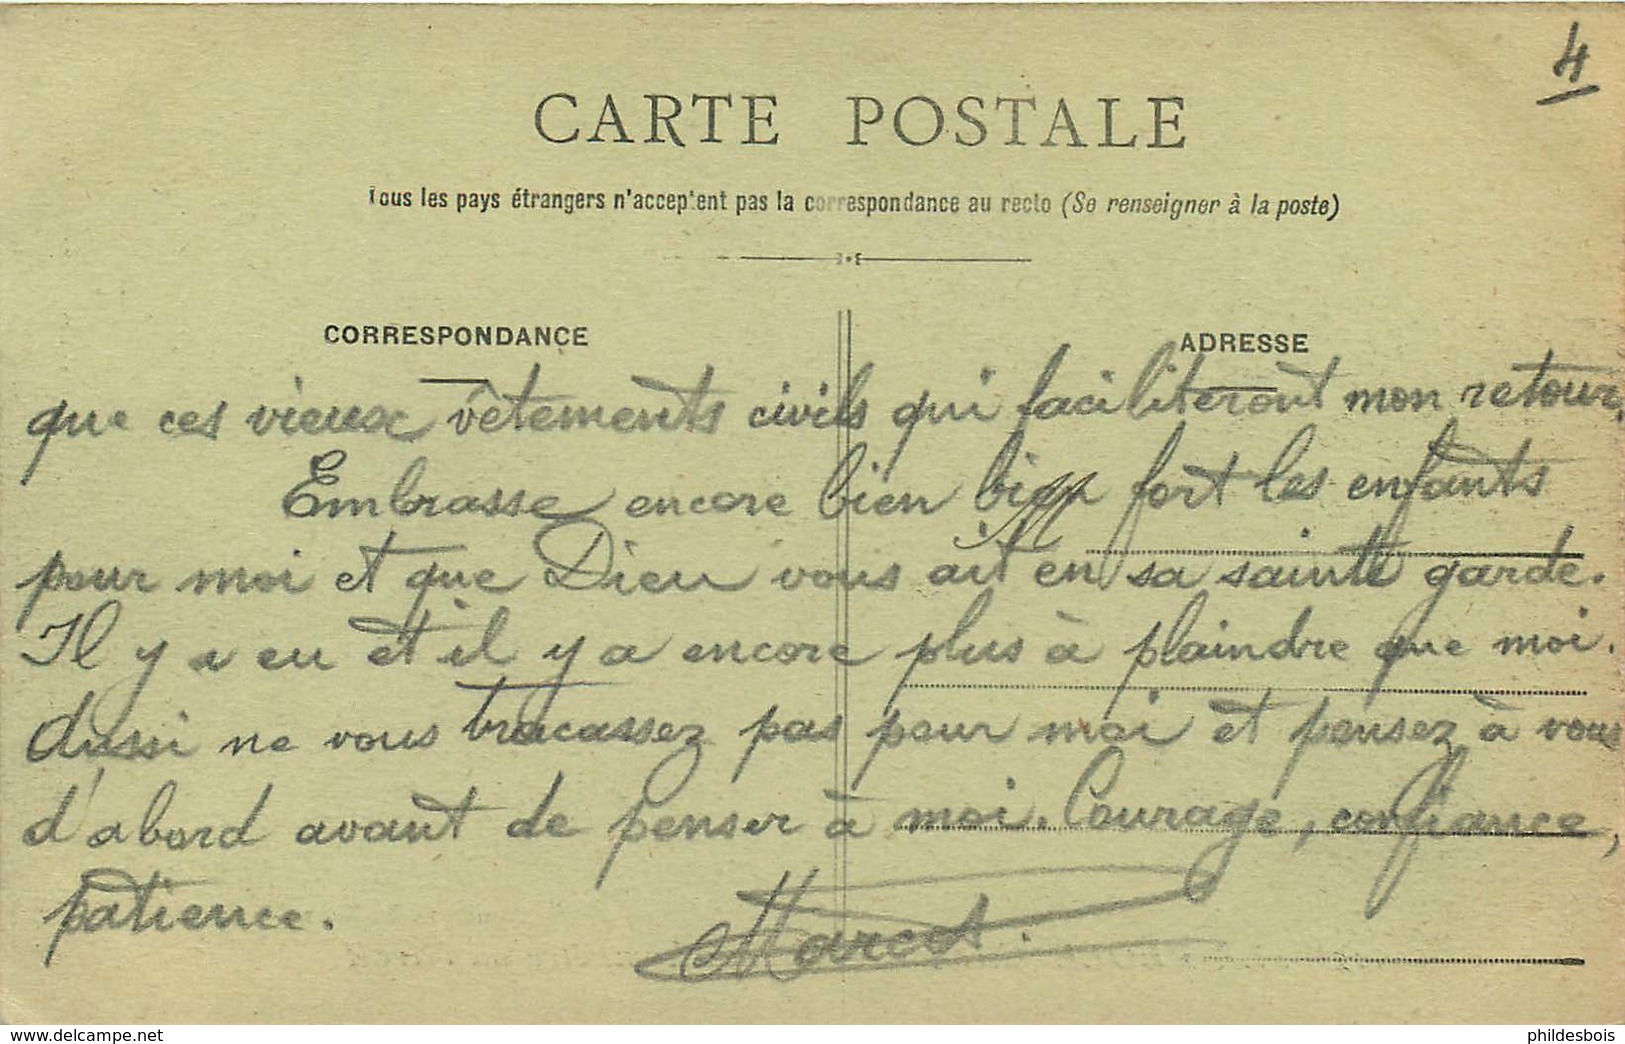 4
CARTE POSTALE
Tous les pays étrangers n'acceptent pas la correspondance au recto (Se renseigner à la poste)
CORRESPONDANCE
ADRESSE
que ces vieux vêtements civils qui faciliteront mon retour.
Embrasse encore bien bien fort les enfants
pour moi et que Dieu vous ait en sa sainte garde.
Il y a eu et il y a encore plus à plaindre que moi.
Aussi ne vous tracassez pas pour moi et pensez à vous
d'abord avant de penser à moi. Courage, confiance,
patience.
Marcot.
www.delcampe.net
phildesbois